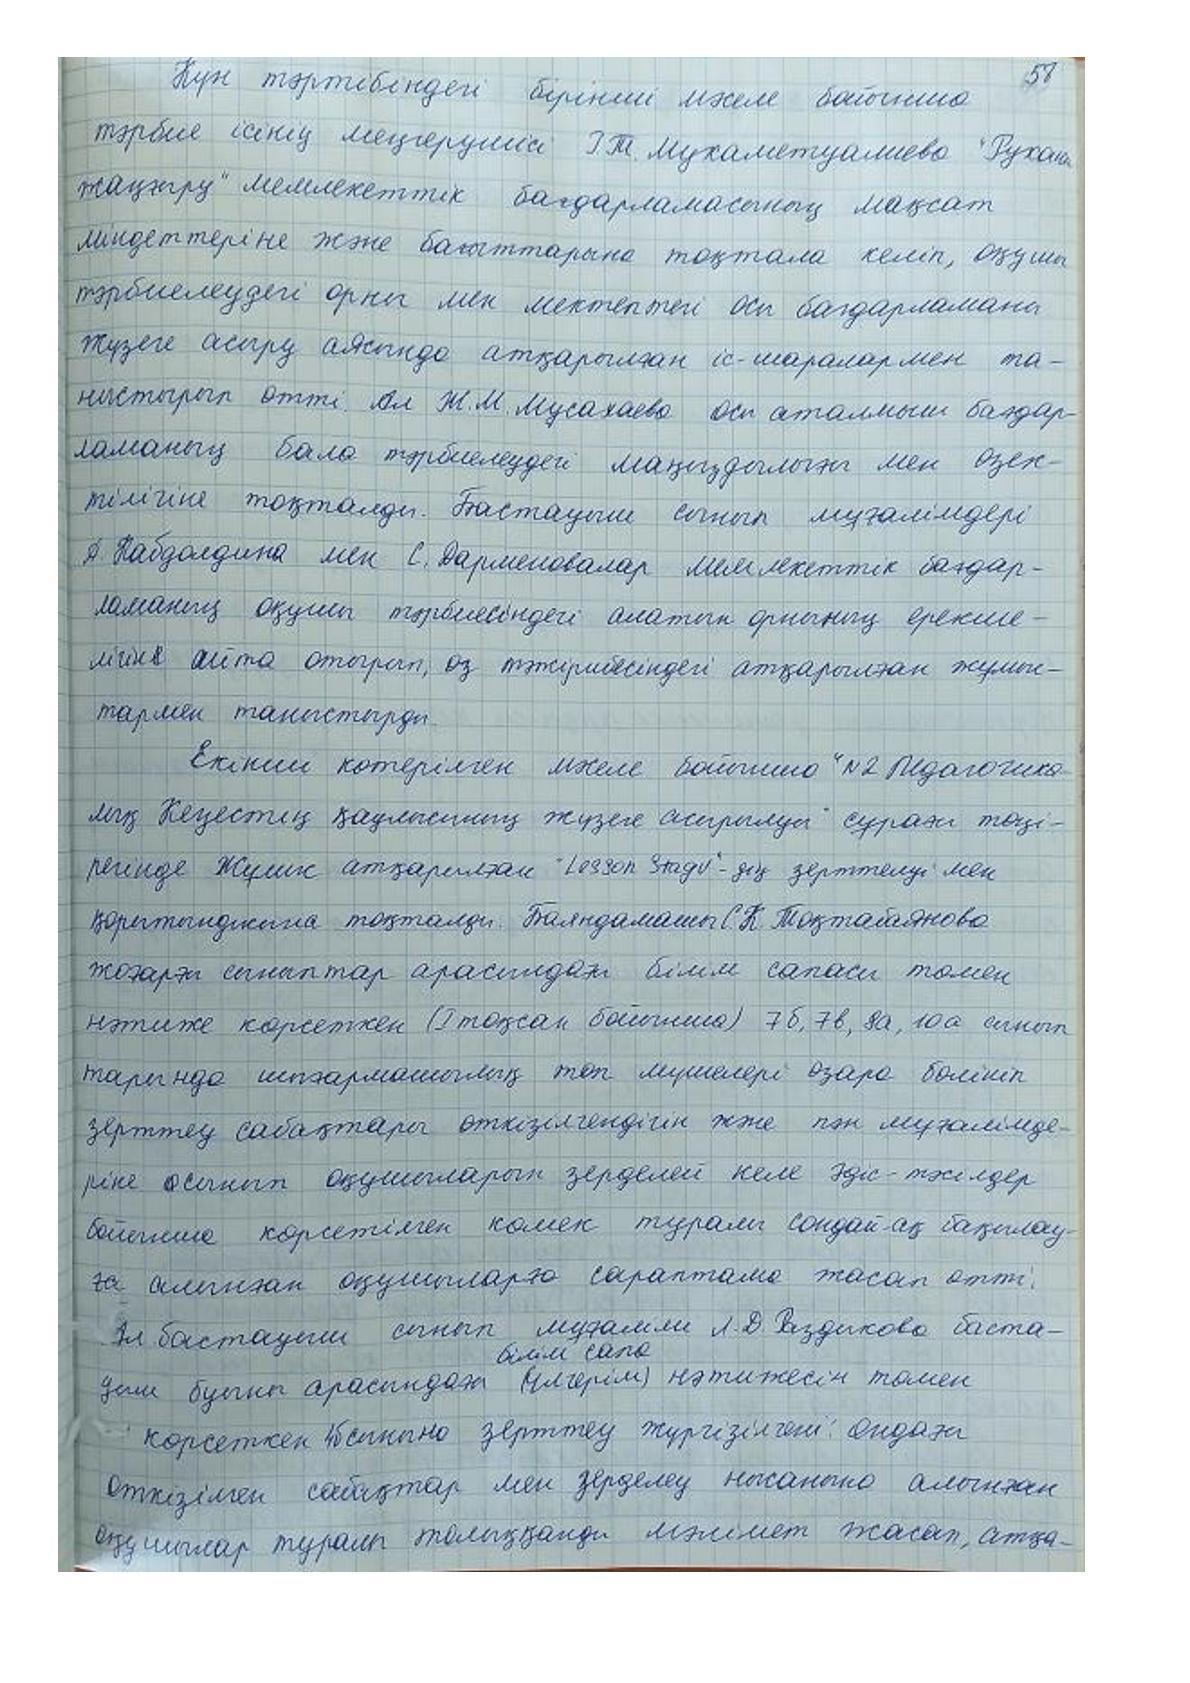 58
Күн тәртібіндегі бірінші мәселе бойынша
тәрбие ісінің меңгерушісі І.Т. Мухаметуалиева "Рухани
жаңғыру" мемлекеттік бағдарламасының мақсат
міндеттеріне және бағыттарына тоқтала келіп, оқушы
тәрбиелеудегі орны мен мектептегі осы бағдарламаны
жүзеге асыру аясында атқарылған іс-шаралармен та-
ныстырып өтті. Ал Ж.М. Мусахаева осы аталмыш бағдар-
ламаның бала тәрбиелеудегі маңыздылығы мен өзек-
тілігіне тоқталды. Бастауыш сынып мұғалімдері
А. Кабдолдина мен С. Дарменовалар мемлекеттік бағдар-
ламаның оқушы тәрбиесіндегі алатын орнының ерекше-
лігіне айта отырып, өз тәжірибесіндегі атқарылған жұмыс-
тармен таныстырды.
Екінші көтерілген мәселе бойынша "№2 Педагогика-
лық Кеңестің қаулысының жүзеге асырылуы" сұрағы төңі-
регінде Жүлік атқарылған "Lesson Study"-дің зерттелуі мен
қорытындысына тоқталды. Баяндамашы С.К. Тоқтабаянова
жоғарғы сыныптар арасындағы білім сапасы төмен
нәтиже көрсеткен (І тоқсан бойынша) 7б, 7в, 8а, 10а сынып
тарында шығармашылық топ мүшелері өзара бөлініп
зерттеу сабақтары өткізілгендігін және пән мұғалімде-
ріне осынып оқушыларын зерделей келе әдіс-тәсілдер
бойынша көрсетілген көмек туралы сондай-ақ бақылау-
ға алынған оқушыларға сараптама жасап өтті.
Ал бастауыш сынып мұғалімі Л.Д. Раздыкова баста-
білім сапа
уыш буыны арасындағы (үлгерім) нәтижесін төмен
көрсеткен сыныпта зерттеу жүргізілгені. ондағы
өткізілген сабақтар мен зерделеу нысанына алынған
оқушылар туралы толыққанды мәлімет жасап, атқа-